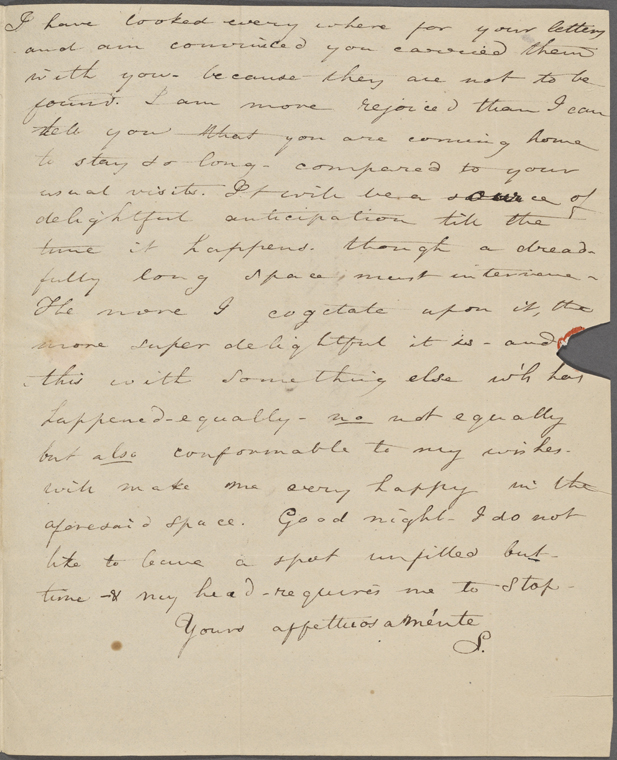 I have looked every where for your letters
and am convinced you carried them
with you - because they are not to be
found. I am more rejoiced than I can
tell you that you are coming home
to stay so long - compared to your
usual visits. It will be a source of
delightful anticipation till the
time it happens. though a dread-
fully long space, must intervene -
The more I cogetate upon it, the
more super delightful it is - and
this with something else wh has
happened - equally - no not equally
but also conformable to my wishes -
will make me very happy in the
aforesaid space. Good night - I do not
like to leave a spot unfilled but -
time & my head - requires me to stop -
Yours affettuosaménte
S.